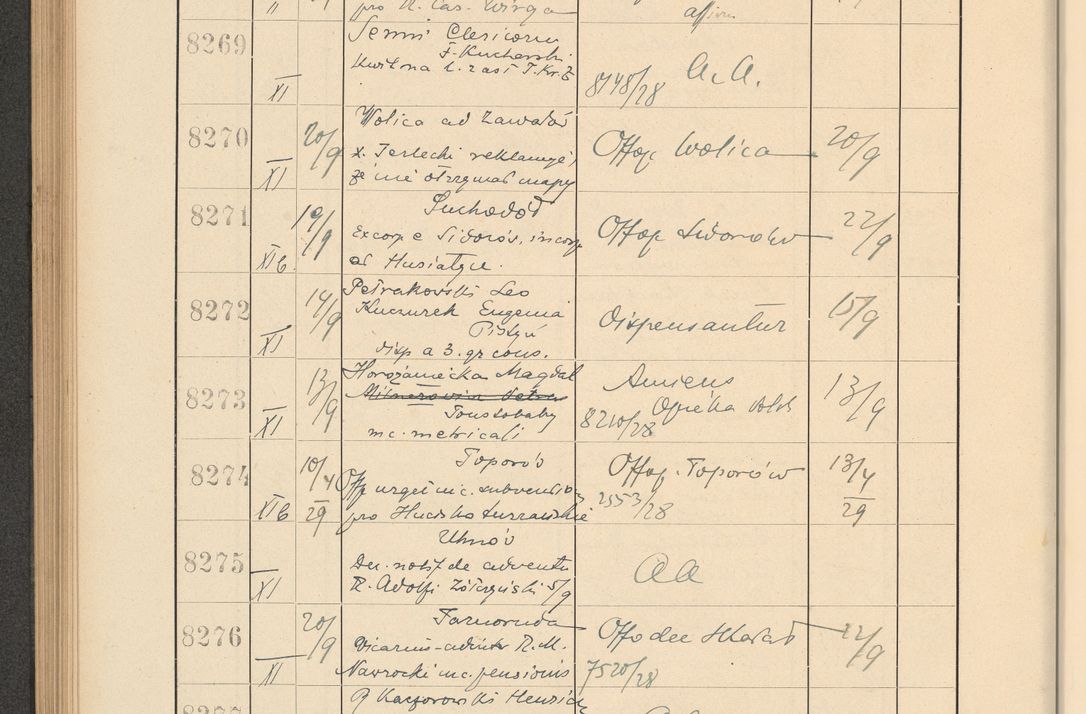 8269
XI
Semin Clericorum
F. Kucharski
8148/28
A. A.
8270
XI
20/9
Wolica ad Zawałów
x. Terlecki reklamuje,
że nie otrzymał mapy
Offop Wolica
20/9
8271
XIb.
19/9
Suchodół
Excorp e Sidorów, incorp
ad Husiatyn.
Offop Sidorów
22/9
8272
XI
14/9
Petrakowski Leo
Kuczurek Eugenia
Pistyń
disp a 3. gr cons.
dispensantur
15/9
8273
XI
13/9
Toustobaby
mc. metricali
Amiens
Opieka Polsk
8210/28
13/9
8274
XIb
10/4
29
Toporów
Offp urget mc. subvention
pro Hucisko turzańskie
Offop. Toporów
2553/28
13/4
29
8275
XI
Uhnów
Dec. notif de adventu
R. Adolfi Żółczyński 5/9
AA
8276
XI
20/9
Tarnoruda
Vicarius-adiutor R. M.
Nawrocki mc. pensionis
Offo dec Skałat
7520/28
22/9
Kaczorowski Henric